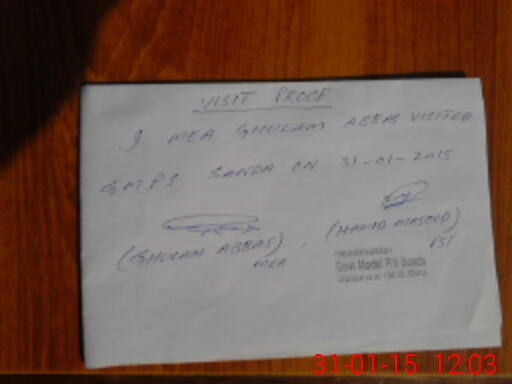 VISIT PROOF
I MEA GHULAM ABBAS VISITED
GMPS SANDA ON 31-01-2015
(GHULAM ABBAS)
MEA
(HAMID MASOOD)
PST
Headmaster
Govt Model P/S Sanda
31-01-15 12:03